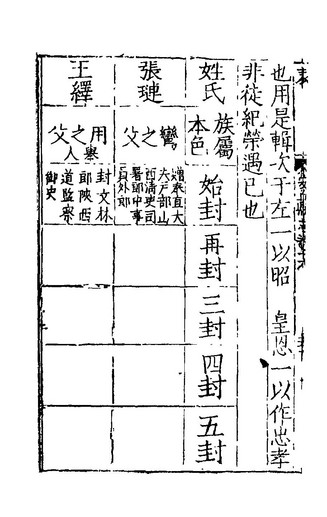 也用是輯次于左一以昭 皇恩一以作忠孝
非徒紀榮遇已也
姓氏
族屬
本色
始封
再封
三封
四封
五封
張璉
鸞之父
贈奉直大
夫戶部山
西清吏司
署郎中事
員外郎
王繹
用之父
舉人
封文林
郎陝西
道監察
御史